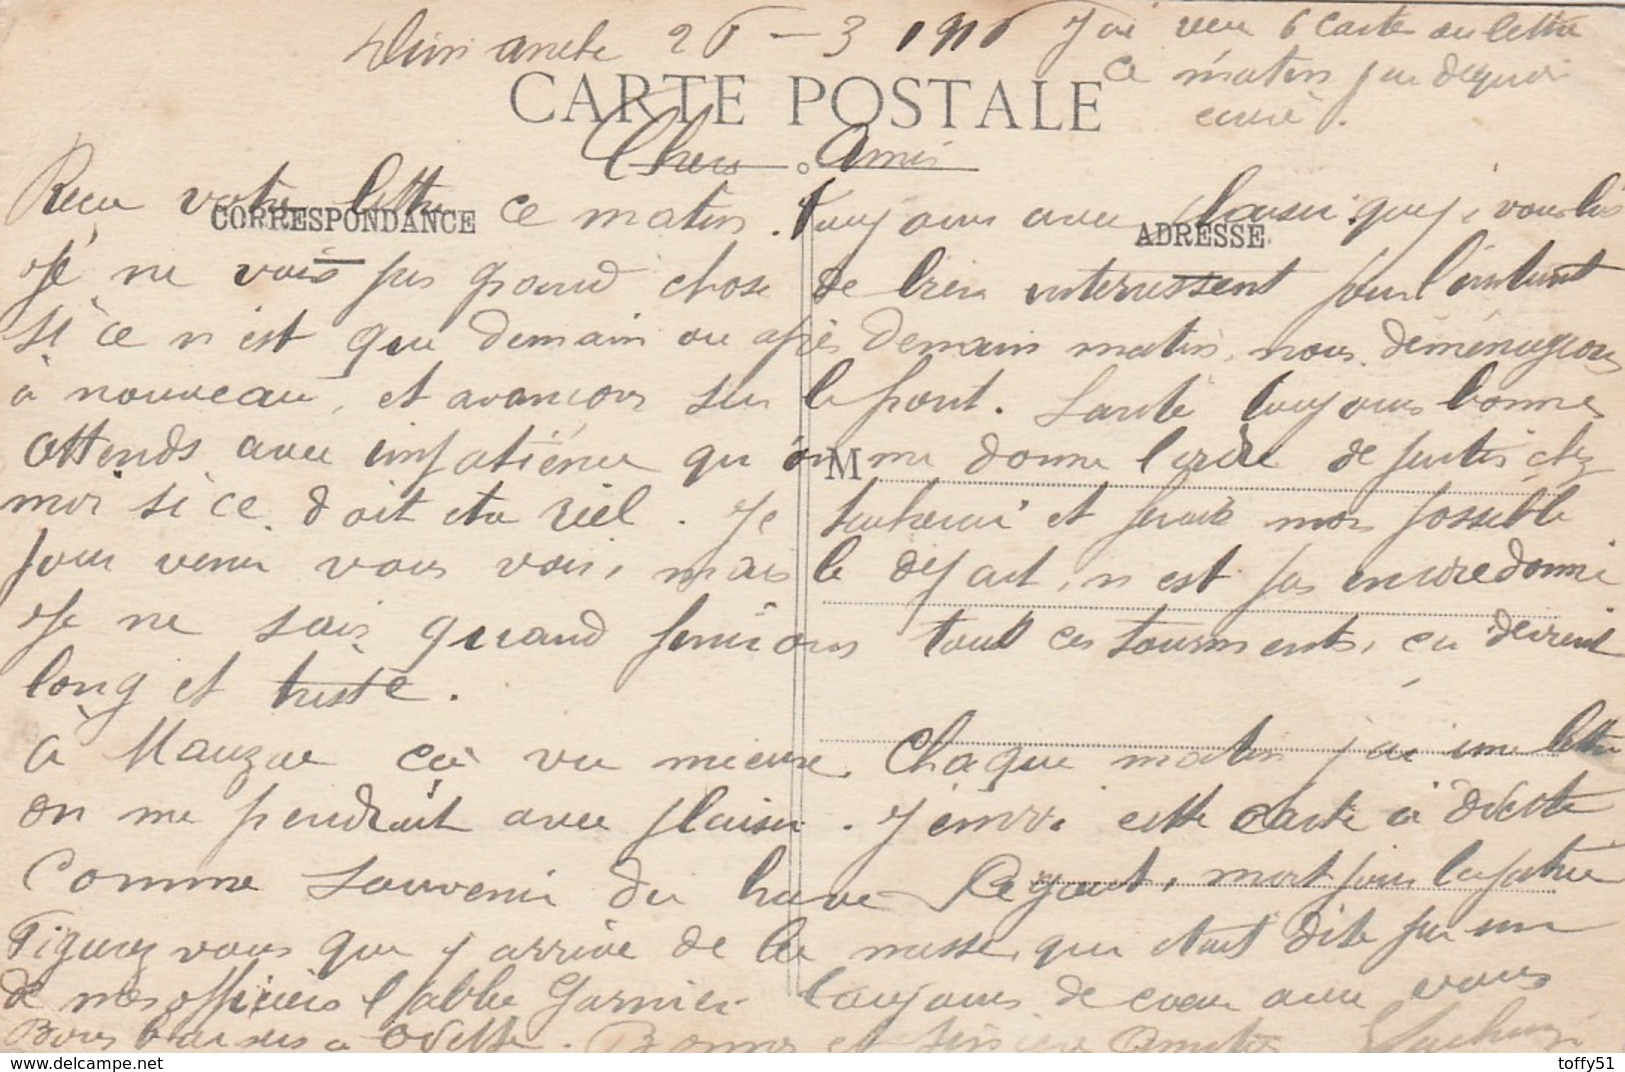 Dimanche 26 - 3 1916 J'ai reçu 6 cartes ou lettre
ce matin
CARTE POSTALE
Chers Amis
Reçu votre lettre ce matin. Toujours avec plaisir que j'vous lis
CORRESPONDANCE
ADRESSE
Je ne vois pas grand chose de bien interressent pour l'instant
si ce n'est que demain ou après demain matin, nous déménageons
à nouveau, et avançons sur le front. Santé toujours bonnes
attends avec impatience qu'on me donne l'ordre de partir chez
M
moi si ce doit etre réel. Je tacherai et ferais mon possible
pour venir vous voir, mais le départ, n'est pas encore donné
Je ne sais quand finirons tout ces tourments, ça devient
long et triste.
à Mauzée ça va mieux. Chaque matin j'ai une lettre
on me pendrait avec plaisir. J'envoi cette carte à Odette
Comme souvenir du brave Pégout, mort pour la patrie
Figurez vous que j'arrive de la messe, qui etait dite par un
de mes officiers l'abbé Garnier. Toujours de cœur avec vous
Bons baisers à Odette. Bonnes et sincères Amitiés
toffy51